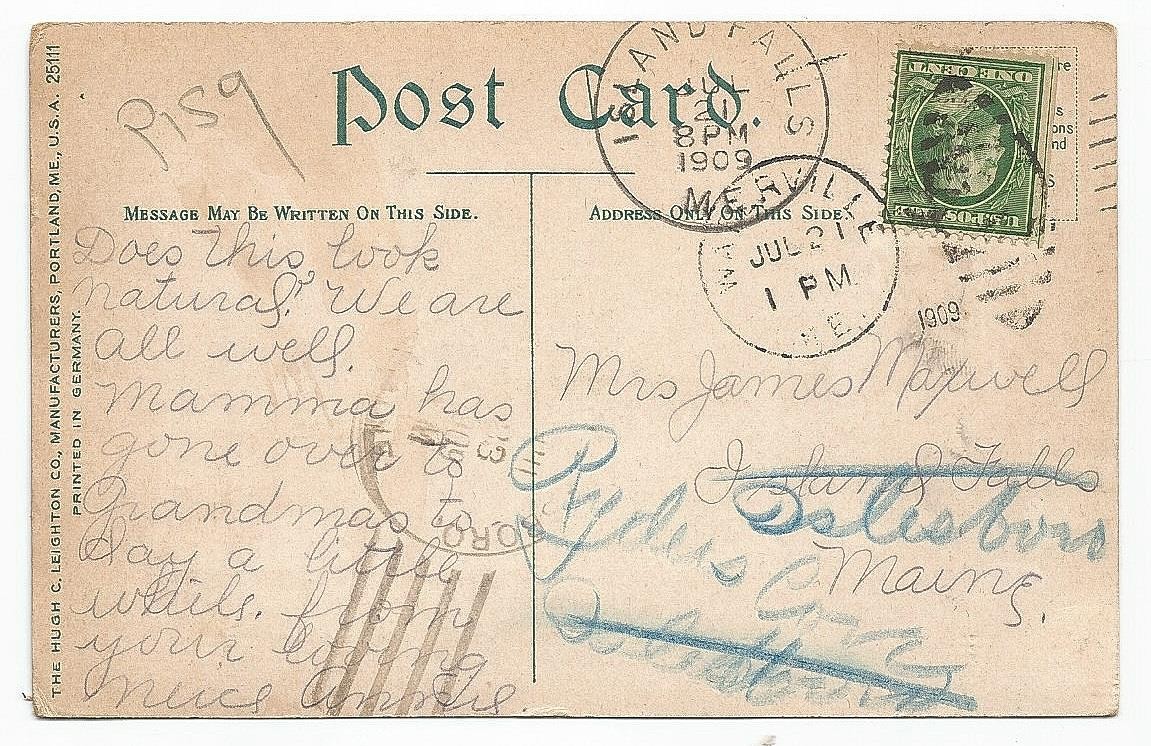 THE HUGH C. LEIGHTON CO., MANUFACTURERS, PORTLAND, ME., U.S.A. 25111
PRINTED IN GERMANY.
P159
Post Card.
ISLAND FALLS
JUL
21
8 PM
1909
ME
WATERVILLE
JUL 21
1 PM
ME.
1909
ONE CENT
U.S. POSTAGE
MESSAGE MAY BE WRITTEN ON THIS SIDE.
Does this look
natural? We are
all well.
Mamma has
gone over to
Grandmas to
day a little
while. from
your loving
neice Annie
BORO
ADDRESS ONLY ON THIS SIDE.
Mrs James Maxwell
Island Falls
Islesboro
Maine.
Ryders
Islesboro